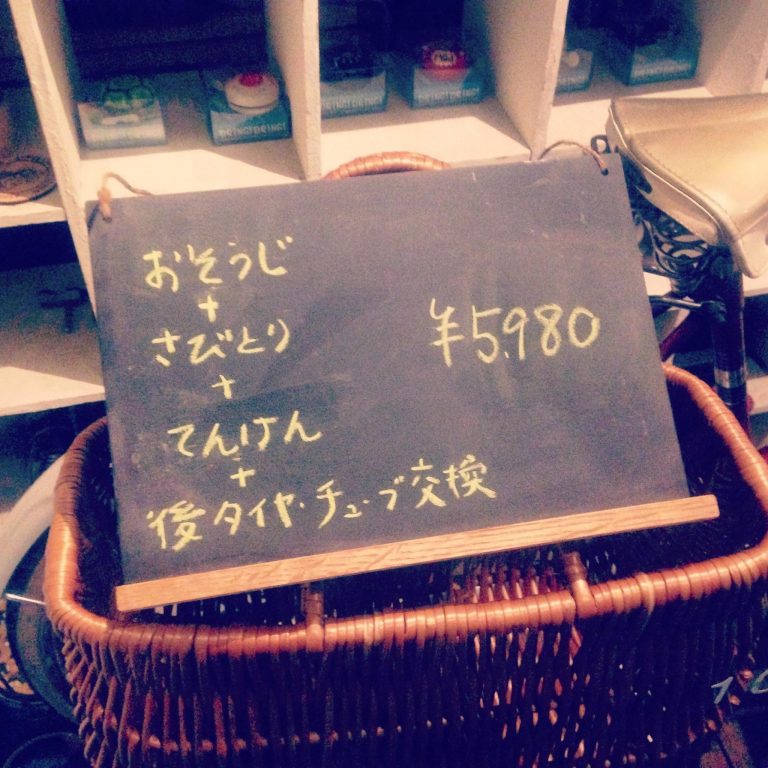 おそうじ
+
さびとり
+
てんけん
+
後タイヤ・チューブ交換
¥5,980
DRING DRING
DRING DRING